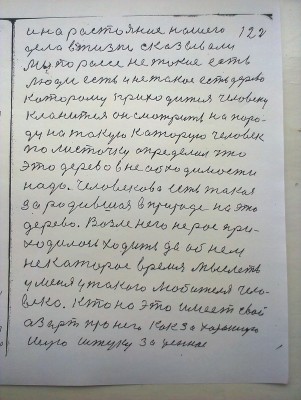 и на растояние нашего 122
дела в жизни сказывали
мы то раше не такие есть
люди есть и не такое есть дерево
которому приходится человеку
кланится он смотрить на поро-
ду на такую каторую человек
по листочку определил что
это дерево в необходимости
надо. Человекова есть такая
зародившая в природе на это
дерево. Возле него не рас при-
ходилось ходить да об нем
некаторое время мыслеть
у меня у такого любителя чело-
века. Кто на это имеет свой
азарт про него как за хорошую
штуку за